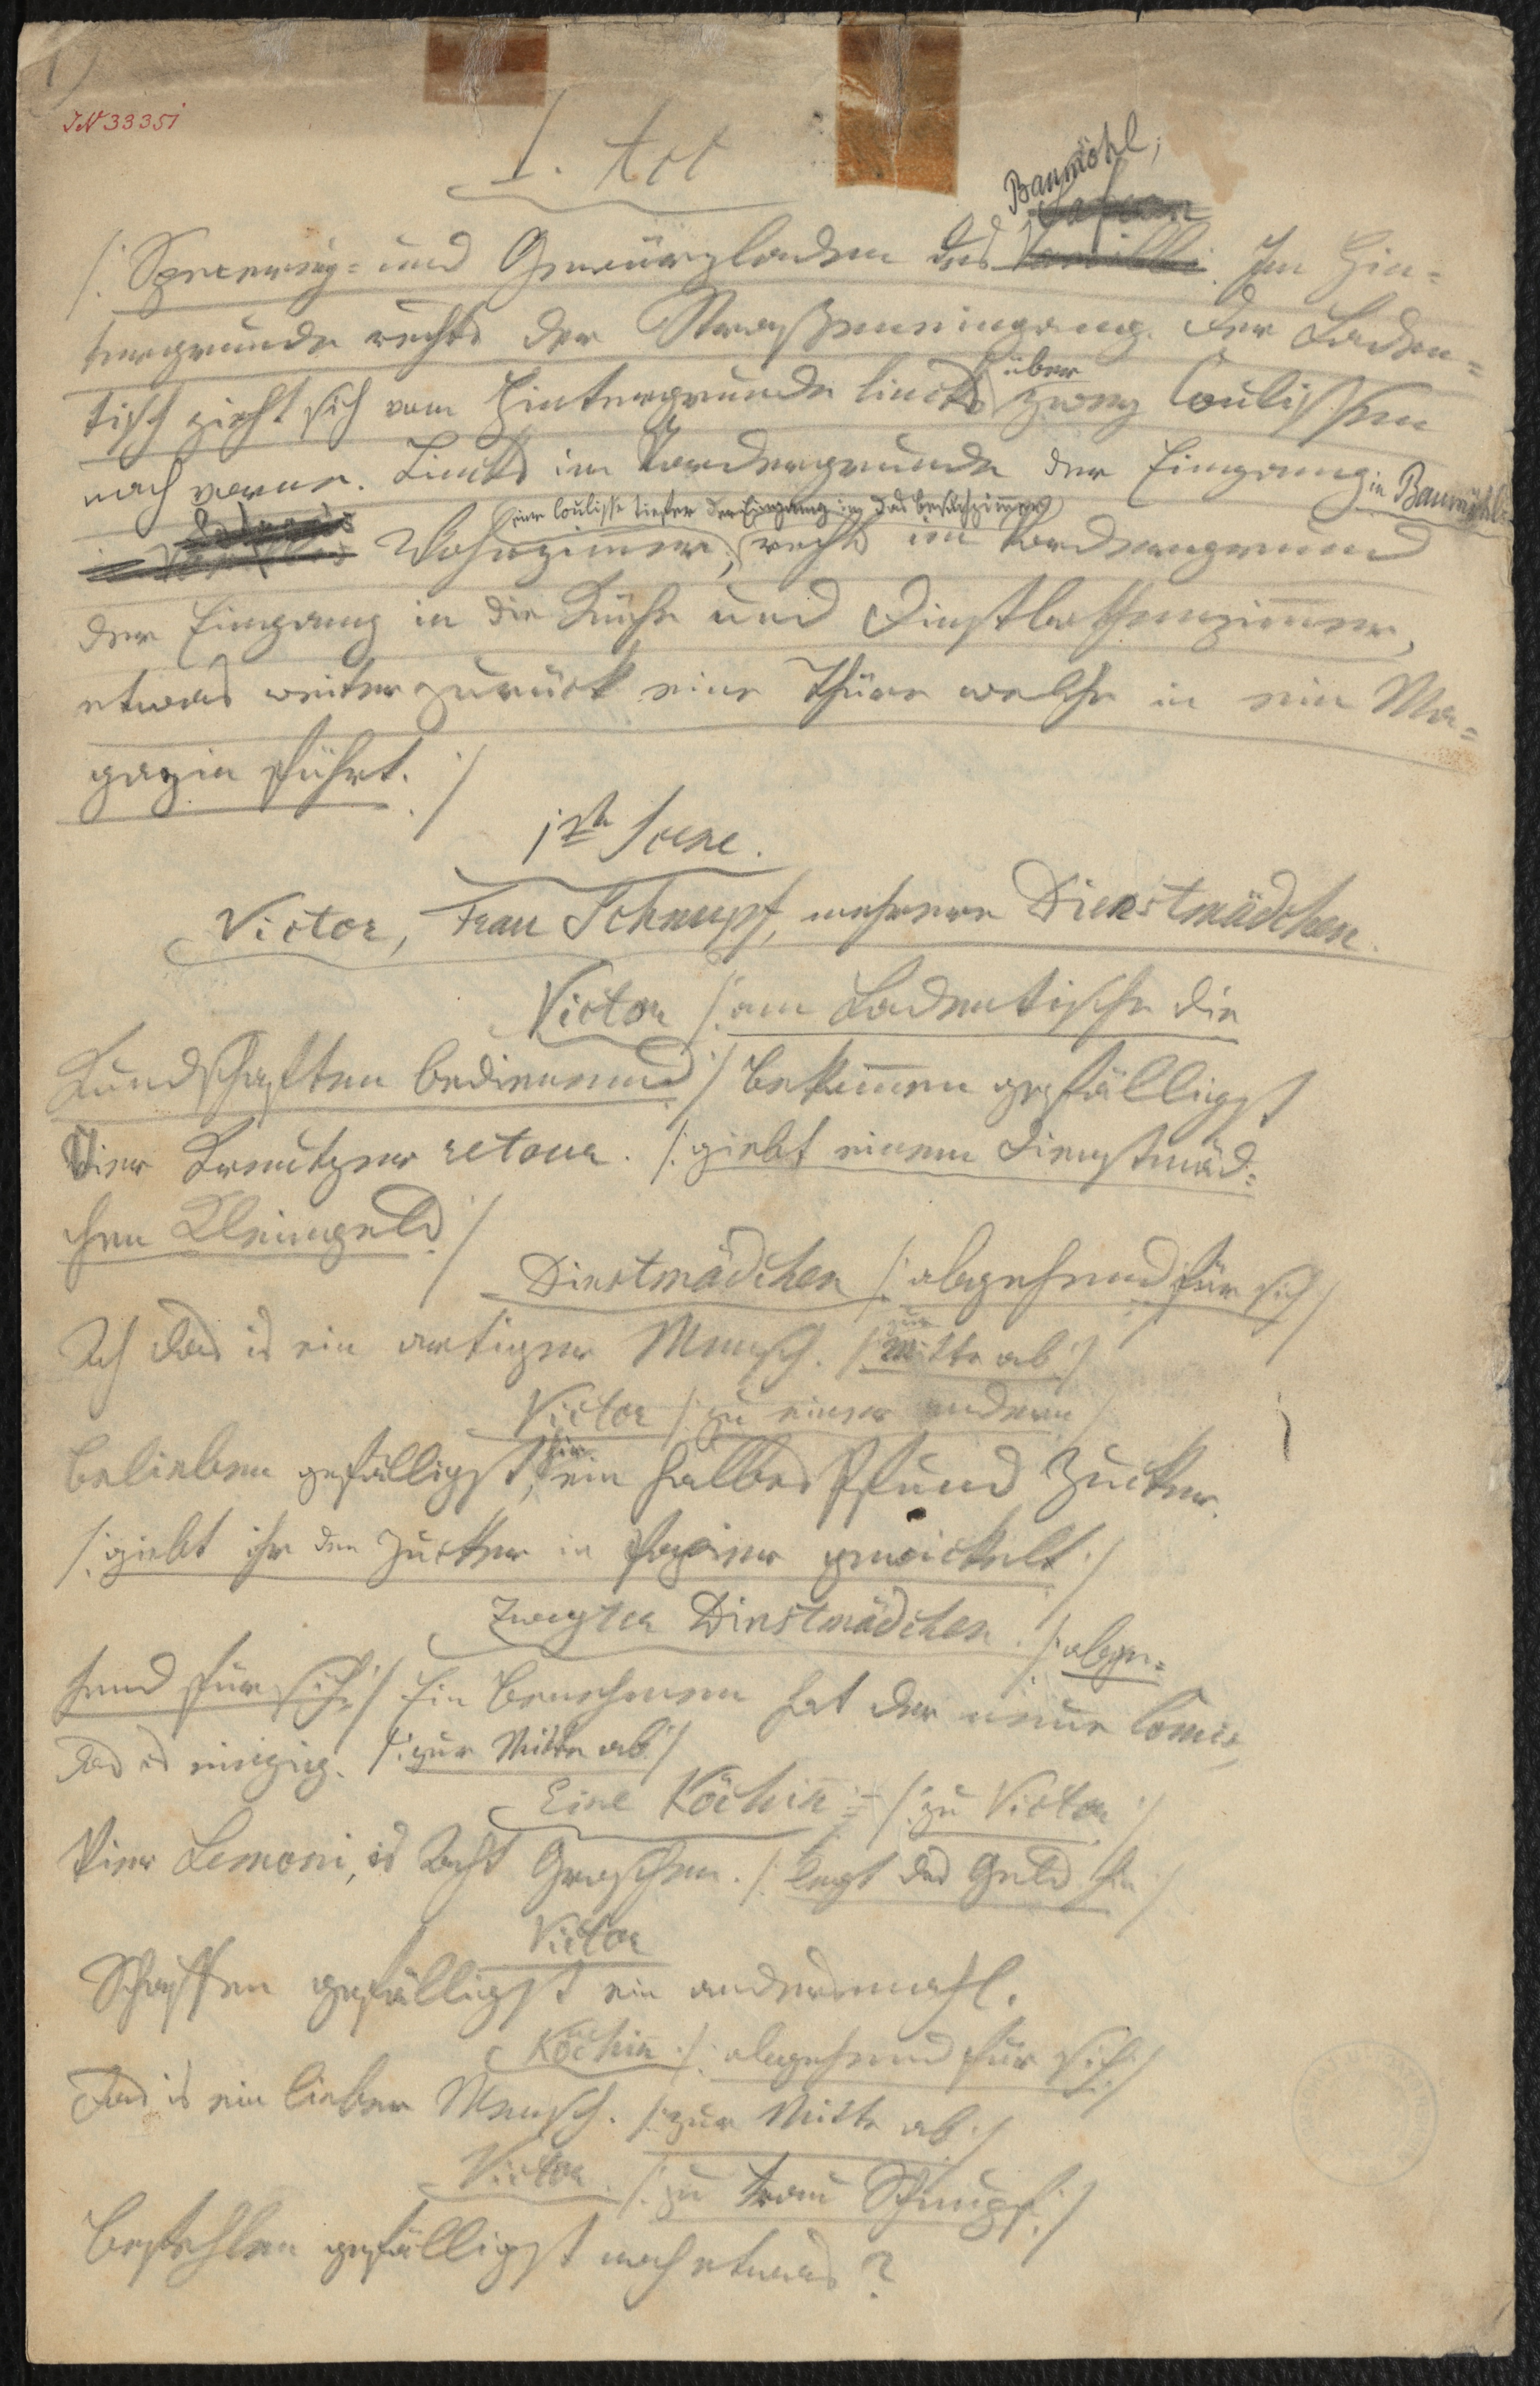 1)
IN 33351
I. Act
Baumöhl,
Safran
/: Specerey= und Gewürzladen des Vanilli. Im Hin=
tergrunde rechts der Straßeneingang. Der Laden=
über
tisch zieht sich vom Hintergrunde lincks zwey Coulissen
nach vorne. Lincks im Vordergrunde der Eingang in Baumöhls
eine Coulisse tiefer der Eingang in das Besuchzimmer
Wohnzimmer, rechts im Vordergrund
der Eingang in die Küche und Dienstbothenzimmer,
etwas weiter zurück eine Thüre welche in ein Ma=
gazin führt. :/
1ste Scene.
Victor, Frau Schnupf, mehrere Dienstmädchen.
Victor /: am Ladentische die
Kundschaften bedienend :/ Bekommen gefälligst
Vier Kreutzer retour. /: giebt einem Dienstmäd=
chen Kleingeld :/
Dienstmädchen /: abgehend für sich :/
Ach das is ein artiger Mensch. /: zur Mitte ab :/
Victor /: zu einer andern :/
Belieben gefälligst, hier ein halbes Pfund Zucker.
/: giebt ihr den Zucker in Papier gewickelt :/
Zweytes Dienstmädchen. /: abge=
hend für sich :/ Ein Benehmen hat der neue Comis,
das is einzig. /: zur Mitte ab :/
Eine Köchin /: zu Victor :/
Vier Lemoni, is Acht Groschen. /: legt das Geld hin :/
Victor
Schaffen gefälligst ein andersmahl.
Köchin /: abgehend für sich :/
Das is ein lieber Mensch. /: zur Mitte ab :/
Victor. /: zu Frau Schnupf :/
Befehlen gefälligst noch etwas?